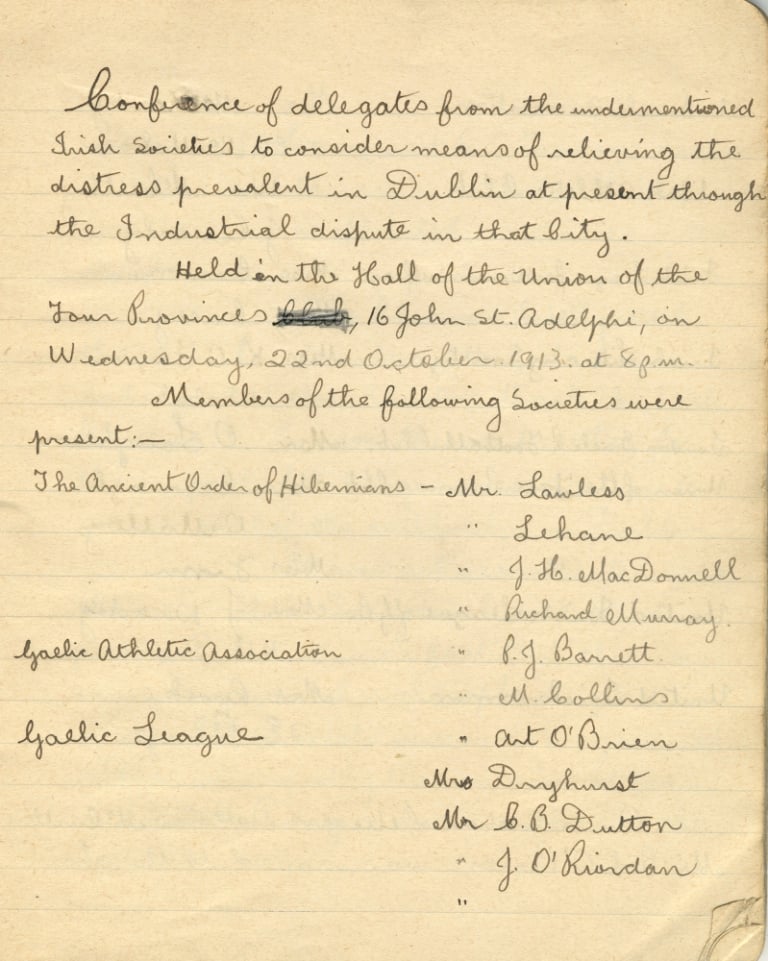 Conference of delegates from the undermentioned
Irish Societies to consider means of relieving the
distress prevalent in Dublin at present through
the Industrial dispute in that City.
Held in the Hall of the Union of the
Four Provinces Club, 16 John St. Adelphi, on
Wednesday, 22nd October 1913. at 8 p.m.
Members of the following Societies were
present:—
The Ancient Order of Hibernians — Mr. Lawless
" Lehane
" J. H. MacDonnell
" Richard Murray.
Gaelic Athletic Association " P. J. Barrett.
" M. Collins
Gaelic League " Art O'Brien
Mrs Dryhurst
Mr C. B. Dutton
" J. O'Riordan
"